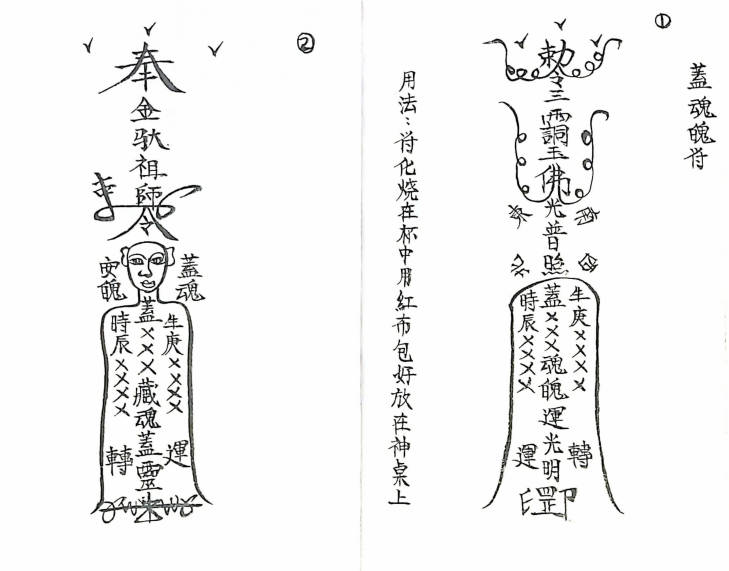 ①
蓋魂魄符
勅令三
玉佛光普照
生庚××××
蓋×××魂魄運光明
時辰××××
轉
運
罡
用法：符化燒在杯中用紅布包好放在神桌上
②
奉金馱祖師令
蓋魂
安魄
生庚××××
蓋×××藏魂蓋靈
時辰××××
運
轉